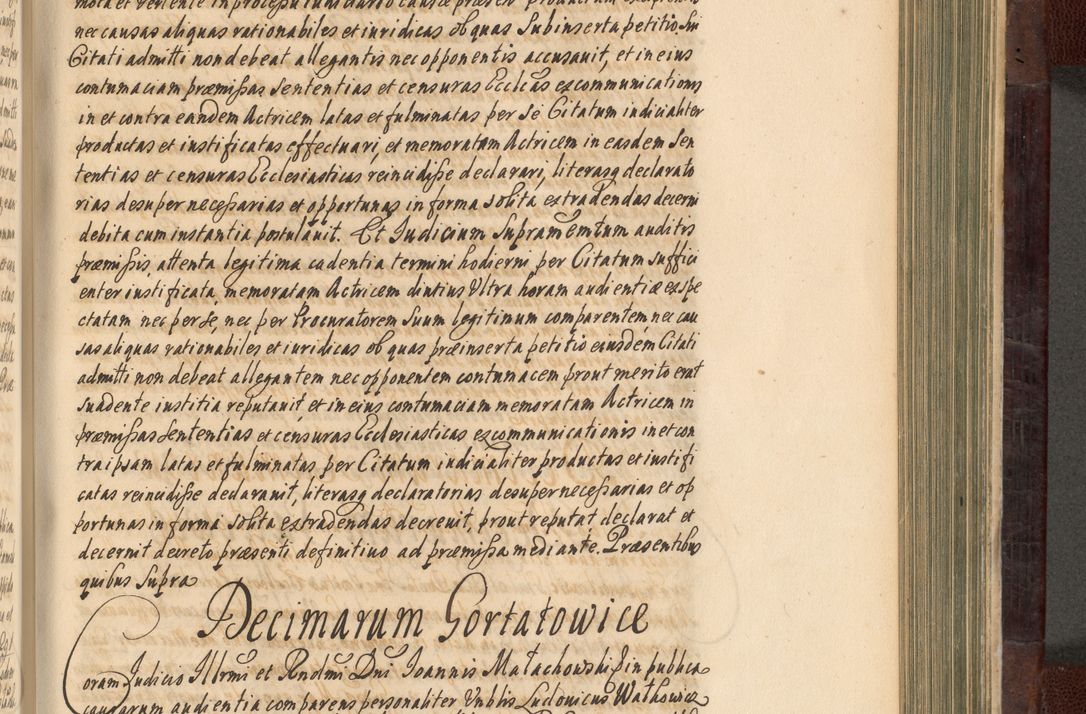 nec causas aliquas rationabiles et iuridicas ob quas Subinserta petitio Sui
Citati admitti non debeat allegantis nec opponentis accusauit, et in eius
contumaciam præmissas sententias et censuras Ecclcas excommunicationis
in et contra eandem Actricem latas et fulminatas per se Citatum iudicialiter
productas et iustificatas effectuari, et memoratam Actricem in easdem Sen
tentias et censuras Ecclesiasticas reincidisse declarari, literasq declarato
rias desuper necessarias et opportunas in forma solita extradendas decerni
debita cum instantia postulauit. Et Iudicium Supramemtum auditis
præmissis, attenta legitima cadentia termini hodierni per Citatum suffici
enter iustificata, memoratam Actricem diutius Vltra horam audientiæ exspe
ctatam nec per se, nec per Procuratorem Suum legitimum comparentem, nec cau
sas aliquas rationabiles et iuridicas ob quas præinserta petitio eiusdem Citati
admitti non debeat allegantem nec opponentem contumacem prout merito erat
suadente iustitia reputauit, et in eius contumaciam memoratam Actricem in
præmissas Sententias et censuras Ecclesiasticas excommunicationis in et con
tra ipsam latas et fulminatas, per Citatum iudicialiter productas et iustifi
catas reincidisse declarauit, literasq declaratorias desuper necessarias et op
portunas in forma solita extradendas decreuit, prout reputat, declarat et
decernit decreto præsenti definitiuo ad præmissa mediante. Præsentibus
quibus Supra
Decimarum Gortatowice
Coram Iudicio Illrmi et Rndmi Dni Ioannis Małachowski in publica
causarum audientia comparens personaliter Vnblis Ludouicus Wathowicz